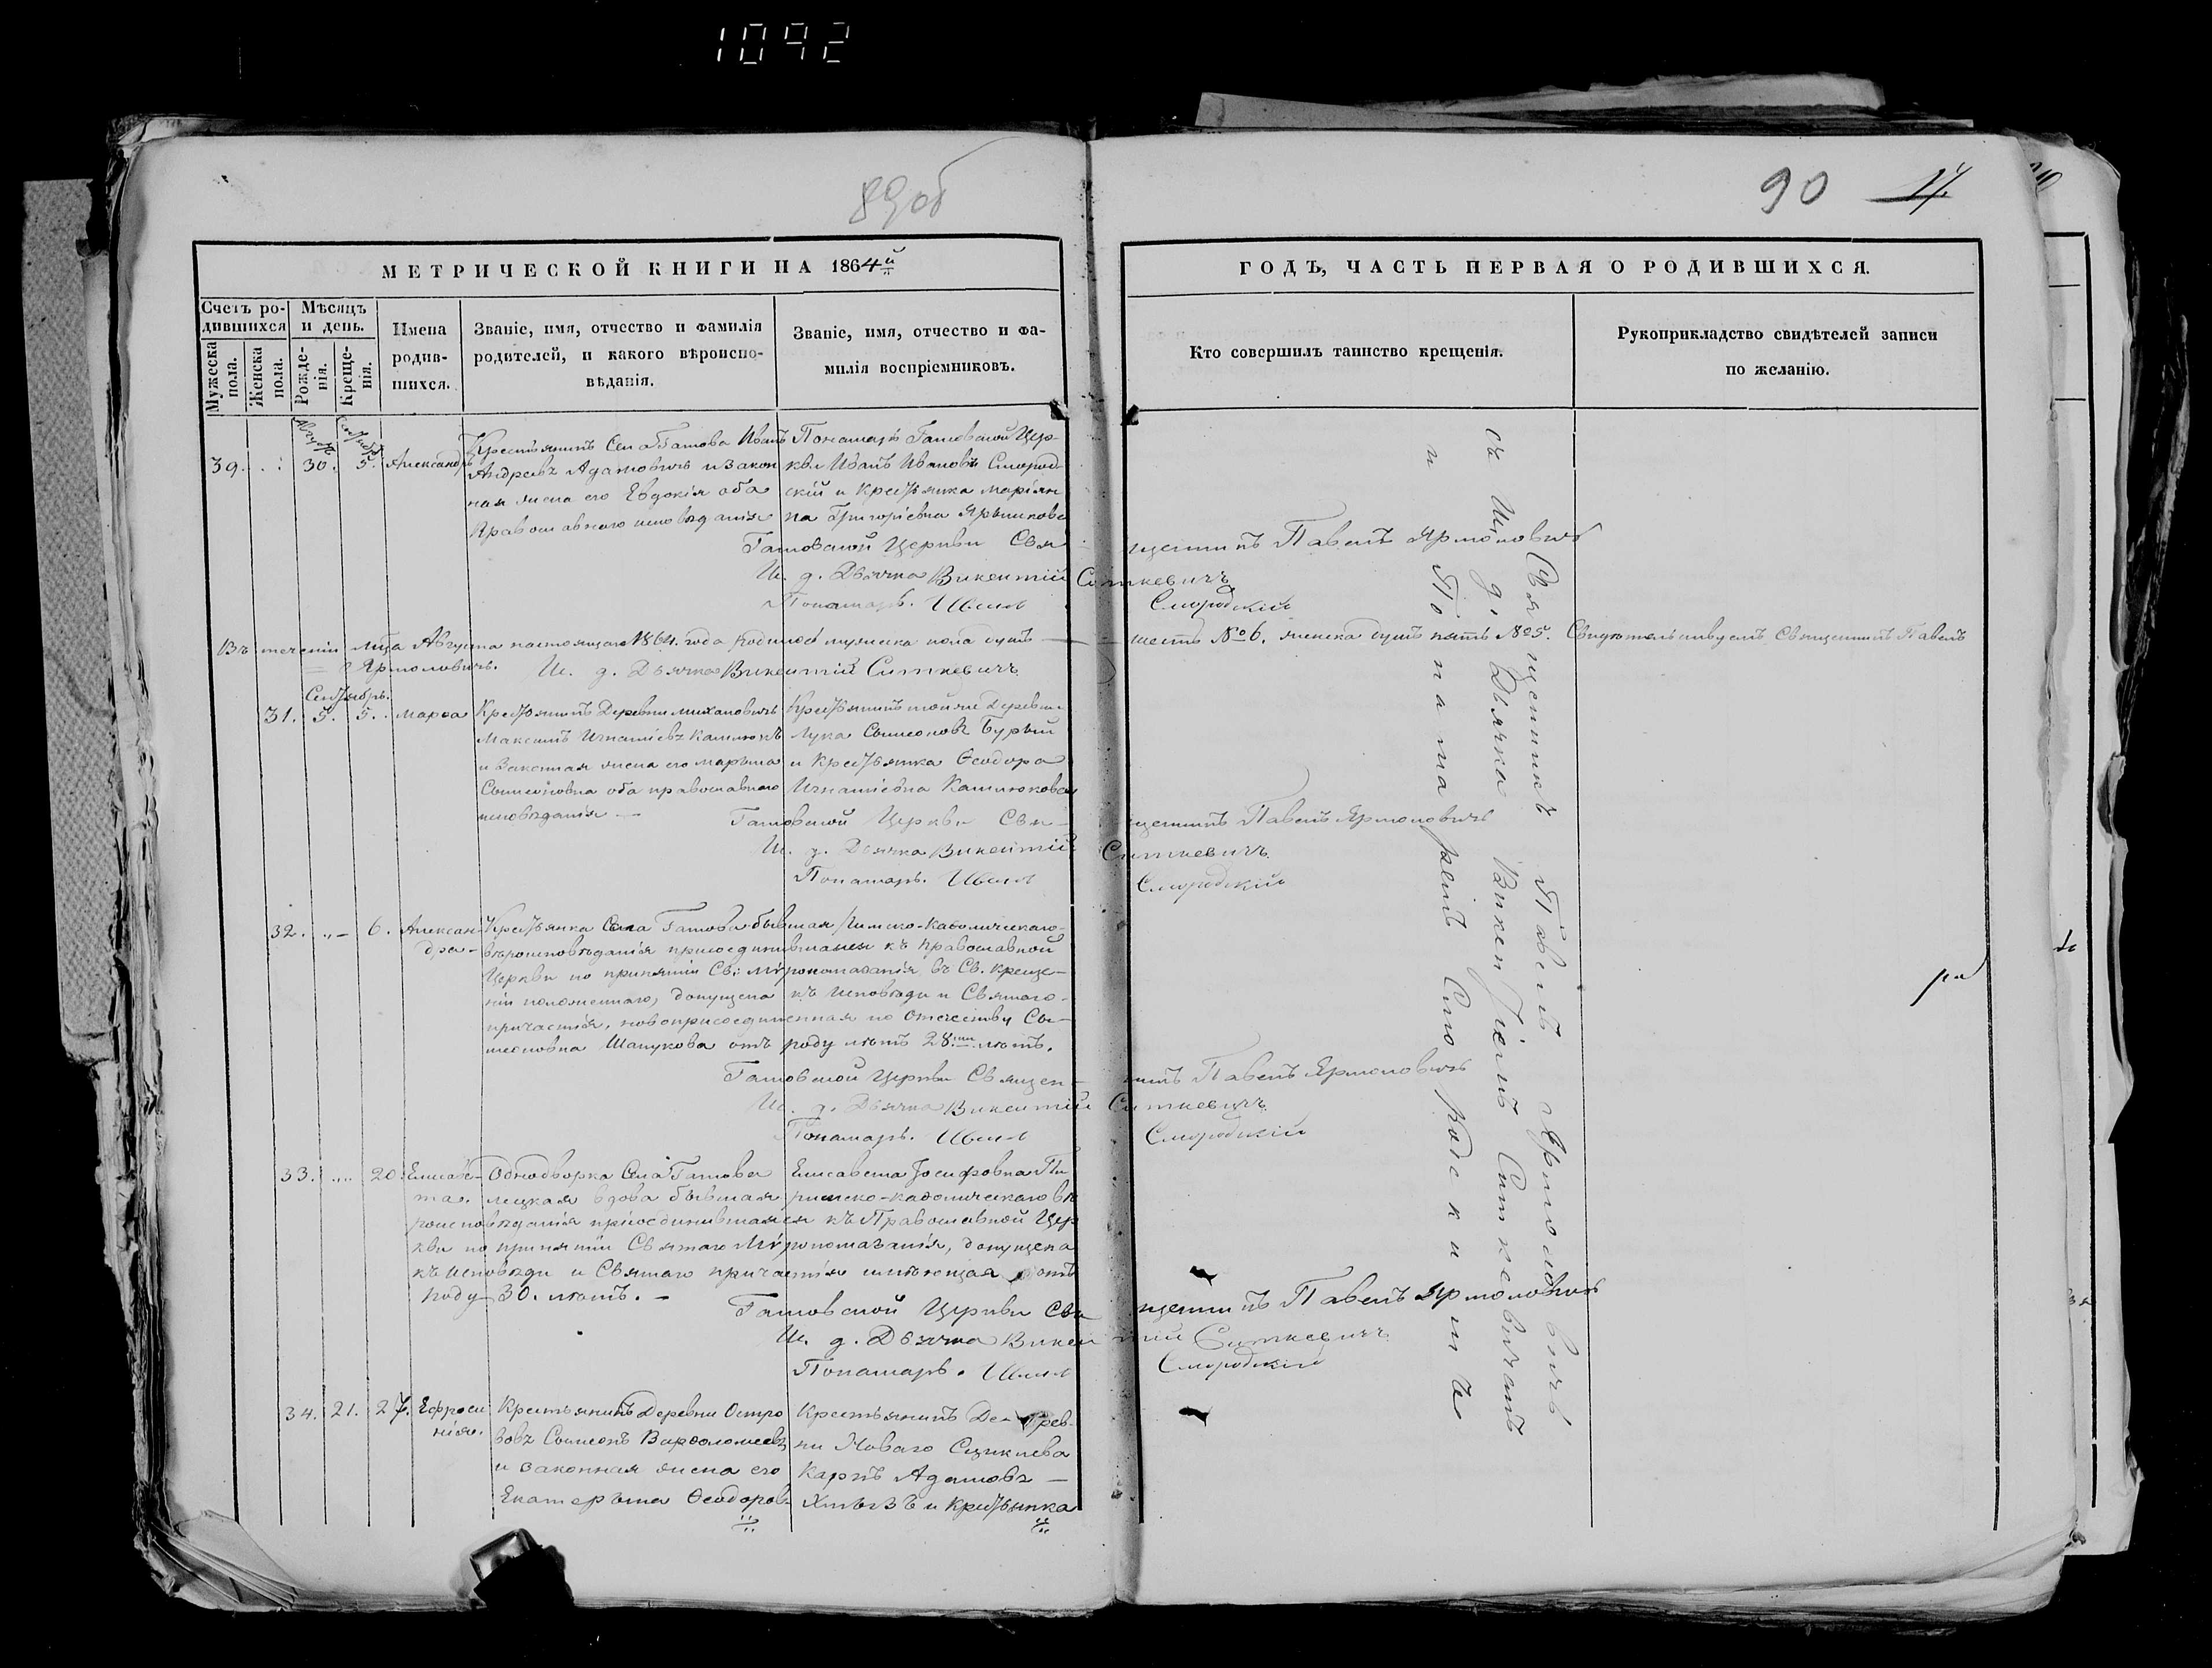 1092
89 об
90 17
МЕТРИЧЕСКОЙ КНИГИ НА 1864й
ГОДЪ, ЧАСТЬ ПЕРВАЯ О РОДИВШИХСЯ.
Счетъ ро-
дившихся
Мѣсяцъ
и день.
Мужеска
пола.
Женска
пола.
Рожде-
нія.
Креще-
нія.
Имена
родив-
шихся.
Званіе, имя, отчество и фамилія
родителей, и какого вѣроиспо-
вѣданія.
Званіе, имя, отчество и фа-
милія воспріемниковъ.
Кто совершилъ таинство крещенія.
Рукоприкладство свидѣтелей записи
по желанію.
39. 30. 5. Александръ
Крестьянинъ Села Гатова Иванъ
Андреевъ Адамовичъ и закон
ная жена его Евдокія оба
Православнаго исповѣданія
Пономарь Гатовской Цер-
кви Иванъ Ивановъ Смород-
скій и Крестьянка Маріян
на Григоріевна
Гатовской Церкви Свя
щенникъ Павелъ Ярмоловичъ
И. д. Дьячка Викентій Ситкевичъ
Пономарь. Иванъ Смородскій
Въ теченіи м-ца Августа настоящаго 1864. года родилось мужеска пола душъ — шесть № 6. женска душъ пять № 5. Свидѣтельствуемъ Священникъ Павелъ
Ярмоловичъ. И. д. Дьячка Викентій Ситкевичъ
Сентябрь.
31. 5. 5. Марѳа
Крестьянинъ Деревни Михановичъ
Максимъ Игнатіевъ
и Законная жена его Марьяна
Симеоновна оба православнаго
исповѣданія —
Крестьянинъ той же Деревни
Лука Симеоновъ Бурый
и Крестьянка Ѳеодора
Игнатіевна
Гатовской Церкви Свя-
щенникъ Павелъ Ярмоловичъ
И. д. Дьячка Викентій Ситкевичъ
Пономарь. Иванъ Смородскій
32. „ — 6. Алексан-
дра-
Крестьянка Села Гатова бывшая Римско-Католическаго-
вѣроисповѣданія присоединившаяся къ православной
Церкви по принятіи Св: Мѵропомазанія, въ Св. Креще-
ніи положеннаго, допущена къ Исповѣди и Святаго-
причастія, новоприсоединенная по Отечеству Си-
меоновна Шапукова отъ роду лѣтъ 28.ми лѣтъ.
Гатовской Церкви Священ-
никъ Павелъ Ярмоловичъ
И. д. Дьячка Викентій Ситкевичъ
Пономарь. Иванъ Смородскій
33. „„ 20. Елисаве-
та.
Однодворка Села Гатова Елисавета Іосифовна Пи
лецкая вдова бывшая римско-католическаго вѣ
роисповѣданія присоединившаяся къ Православной Цер
кви по принятіи Святаго Мѵропомазанія, допущена
къ Исповѣди и Святаго причастія имѣющая отъ
роду 30. лѣтъ. —
Гатовской Церкви Свя
щенникъ Павелъ Ярмоловичъ
И. д. Дьячка Викентій Ситкевичъ
Пономарь. Иванъ Смородскій
34. 21. 27. Ефроси
нія.
Крестьянинъ Деревни Остро
вовъ Симеонъ Варѳоломеевъ
и законная жена его
Екатерына Ѳеодоров-
Крестьянинъ Де-рев-
ни Новаго
Карпъ Адамовъ —
и Крестьянка
Священникъ Павелъ Ярмоловичъ
съ И. д. Дьячка Викентіемъ Ситкевичемъ
и Пономаремъ Смородскимъ